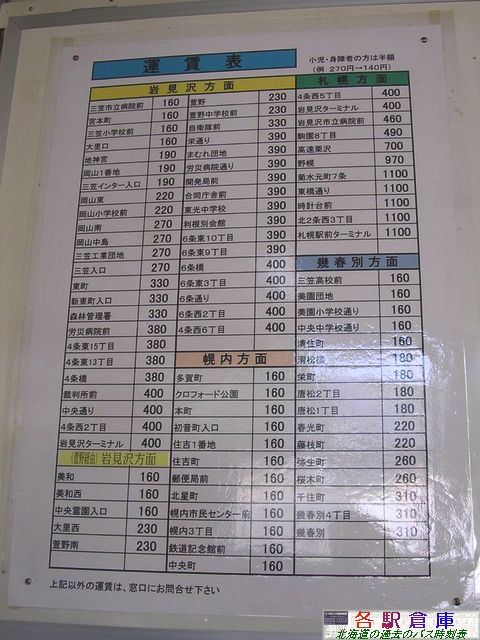 運賃表
小児・身障者の方は半額
(例 270円→140円)
岩見沢方面
三笠市立病院前 160
宮本町 160
三笠小学校前 160
大里口 160
地神宮 190
岡山1番地 190
三笠インター入口 190
岡山東 220
岡山小学校前 220
岡山南 270
岡山中島 270
三笠工業団地 270
三笠入口 270
東町 330
新東町入口 330
森林管理署 330
労災病院前 380
4条東15丁目 380
4条東13丁目 380
4条橋 380
裁判所前 400
中央通り 400
4条西2丁目 400
岩見沢ターミナル 400
萱野 230
萱野中学校前 230
自衛隊前 330
栄通り 390
まむれ団地 390
労災病院通り 390
開発局前 390
合同庁舎前 390
東光中学校 390
利根別会館 390
6条東10丁目 390
6条東9丁目 390
6条橋 400
6条東3丁目 400
6条通り 400
6条西2丁目 400
4条西6丁目 400
(萱野経由)岩見沢方面
美和 160
美和西 160
中央霊園入口 160
大里西 230
萱野南 230
幌内方面
多賀町 160
クロフォード公園 160
本町 160
初音町入口 160
住吉1番地 160
住吉町 160
郵便局前 160
北星町 160
幌内市民センター前 160
幌内3丁目 160
鉄道記念館前 160
中央町 160
札幌方面
4条西5丁目 400
岩見沢ターミナル 400
岩見沢市立病院前 460
駒園8丁目 490
高速栗沢 700
野幌 970
菊水元町7条 1100
東橋通り 1100
時計台前 1100
北2条西3丁目 1100
札幌駅前ターミナル 1100
幾春別方面
三笠高校前 160
美園団地 160
美園小学校通り 160
中央中学校通り 160
清住町 160
清松橋 180
栄町 180
唐松2丁目 180
唐松1丁目 180
春光町 220
藤枝町 220
弥生町 260
桜木町 260
千住町 310
幾春別4丁目 310
幾春別 310
上記以外の運賃は、窓口にお問合せ下さい
各駅倉庫
北海道の過去のバス時刻表